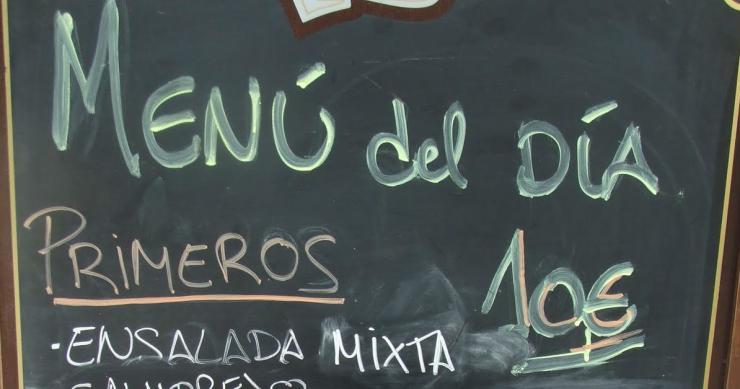 MENÚ del DÍA
PRIMEROS 10€
- ENSALADA MIXTA
SALMOREJO